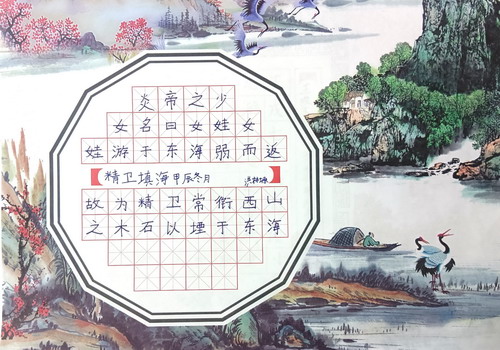 炎帝之少
女名曰女娃女
娃游于东海弱而返
精卫填海甲辰冬月
故为精卫常衔西山
之木石以堙于东海